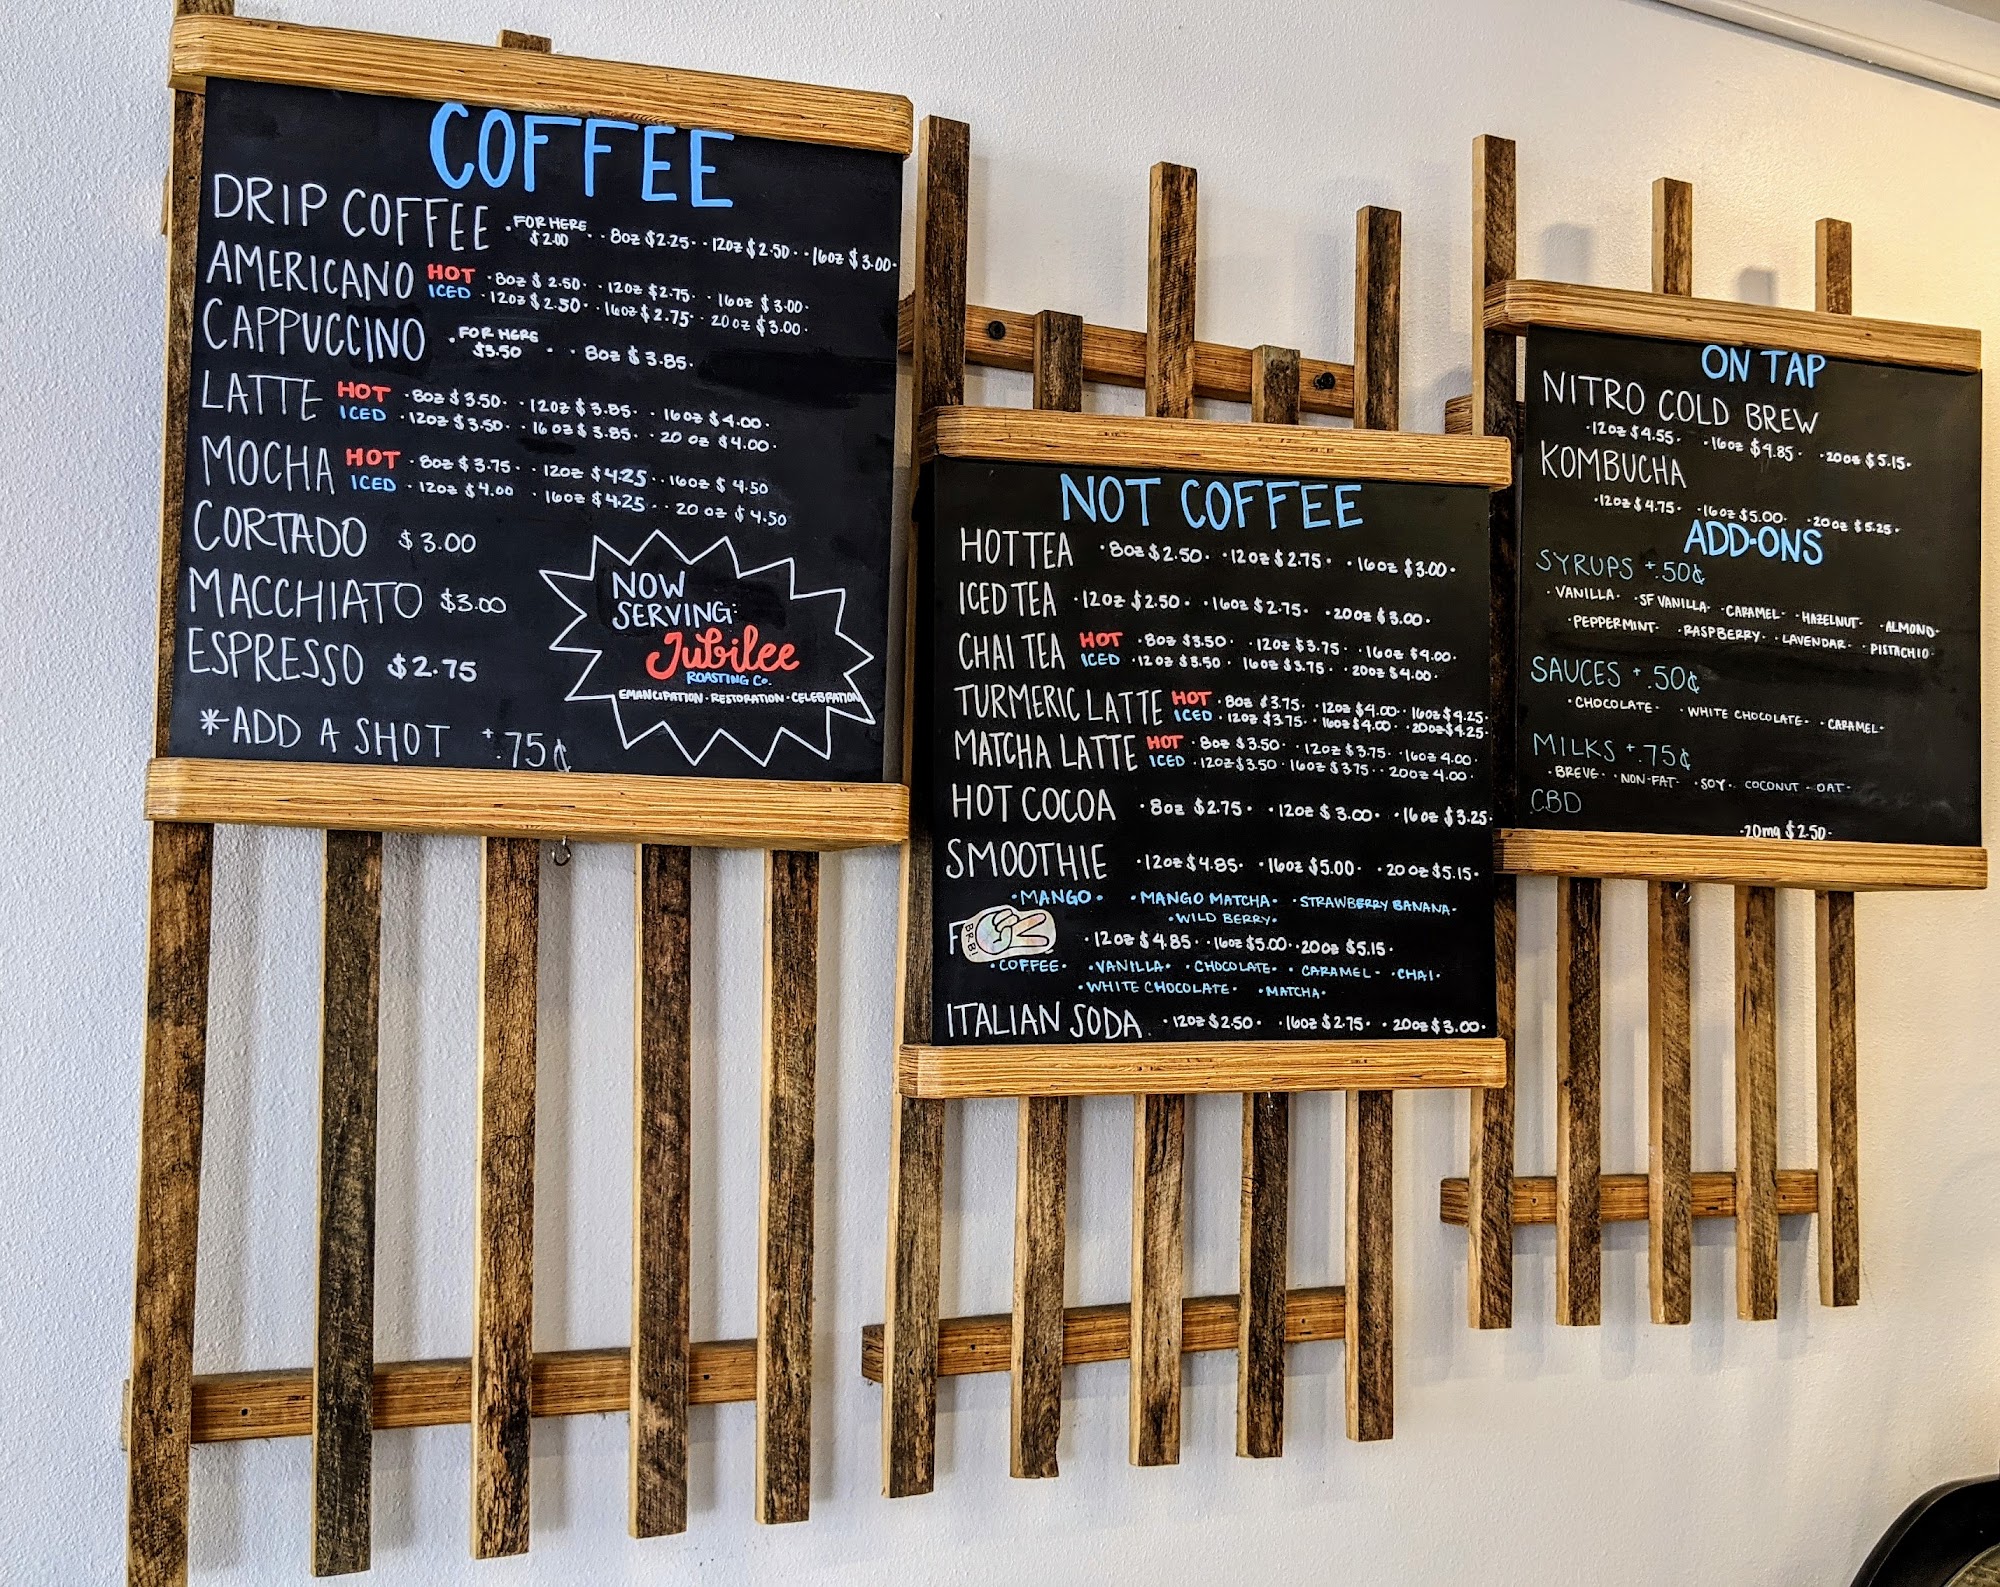 COFFEE
DRIP COFFEE · FOR HERE $2.00 · · 8oz $2.25 · · 12oz $2.50 · · 16oz $3.00 ·
AMERICANO HOT · 8oz $2.50 · · 12oz $2.75 · · 16oz $3.00 ·
ICED · 12oz $2.50 · · 16oz $2.75 · · 20oz $3.00 ·
CAPPUCCINO · FOR HERE $3.50 · · 8oz $3.85 ·
LATTE HOT · 8oz $3.50 · · 12oz $3.85 · · 16oz $4.00 ·
ICED · 12oz $3.50 · · 16oz $3.85 · · 20oz $4.00 ·
MOCHA HOT · 8oz $3.75 · · 12oz $4.25 · · 16oz $4.50
ICED · 12oz $4.00 · 16oz $4.25 · · 20oz $4.50
CORTADO $3.00
MACCHIATO $3.00
ESPRESSO $2.75
*ADD A SHOT +.75¢
NOW
SERVING:
Jubilee
ROASTING CO.
EMANCIPATION · RESTORATION · CELEBRATION
NOT COFFEE
HOT TEA · 8oz $2.50 · · 12oz $2.75 · · 16oz $3.00 ·
ICED TEA · 12oz $2.50 · · 16oz $2.75 · · 20oz $3.00 ·
CHAI TEA HOT · 8oz $3.50 · · 12oz $3.75 · · 16oz $4.00 ·
ICED · 12oz $3.50 · 16oz $3.75 · · 20oz $4.00 ·
TURMERIC LATTE HOT · 8oz $3.75 · · 12oz $4.00 · · 16oz $4.25 ·
ICED · 12oz $3.75 · · 16oz $4.00 · · 20oz $4.25 ·
MATCHA LATTE HOT · 8oz $3.50 · · 12oz $3.75 · · 16oz 4.00 ·
ICED · 12oz $3.50 · 16oz $3.75 · · 20oz 4.00 ·
HOT COCOA · 8oz $2.75 · · 12oz $3.00 · · 16oz $3.25 ·
SMOOTHIE · 12oz $4.85 · · 16oz $5.00 · · 20oz $5.15 ·
· MANGO · · MANGO MATCHA · · STRAWBERRY BANANA ·
· WILD BERRY ·
F · 12oz $4.85 · · 16oz $5.00 · · 20oz $5.15 ·
· COFFEE · · VANILLA · · CHOCOLATE · · CARAMEL · · CHAI ·
· WHITE CHOCOLATE · · MATCHA ·
ITALIAN SODA · 12oz $2.50 · · 16oz $2.75 · · 20oz $3.00 ·
ON TAP
NITRO COLD BREW
· 12oz $4.55 · · 16oz $4.85 · · 20oz $5.15 ·
KOMBUCHA
· 12oz $4.75 · · 16oz $5.00 · · 20oz $5.25 ·
ADD-ONS
SYRUPS +.50¢
· VANILLA · · SF VANILLA · · CARAMEL · · HAZELNUT · · ALMOND ·
· PEPPERMINT · · RASPBERRY · · LAVENDAR · · PISTACHIO ·
SAUCES +.50¢
· CHOCOLATE · · WHITE CHOCOLATE · · CARAMEL ·
MILKS +.75¢
· BREVE · · NON-FAT · · SOY · COCONUT · OAT ·
CBD
· 20mg $2.50 ·